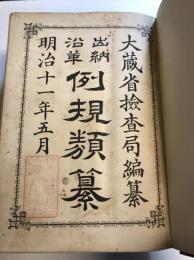 大藏省檢査局編纂
出納
沿革
例規類纂
明治十一年五月